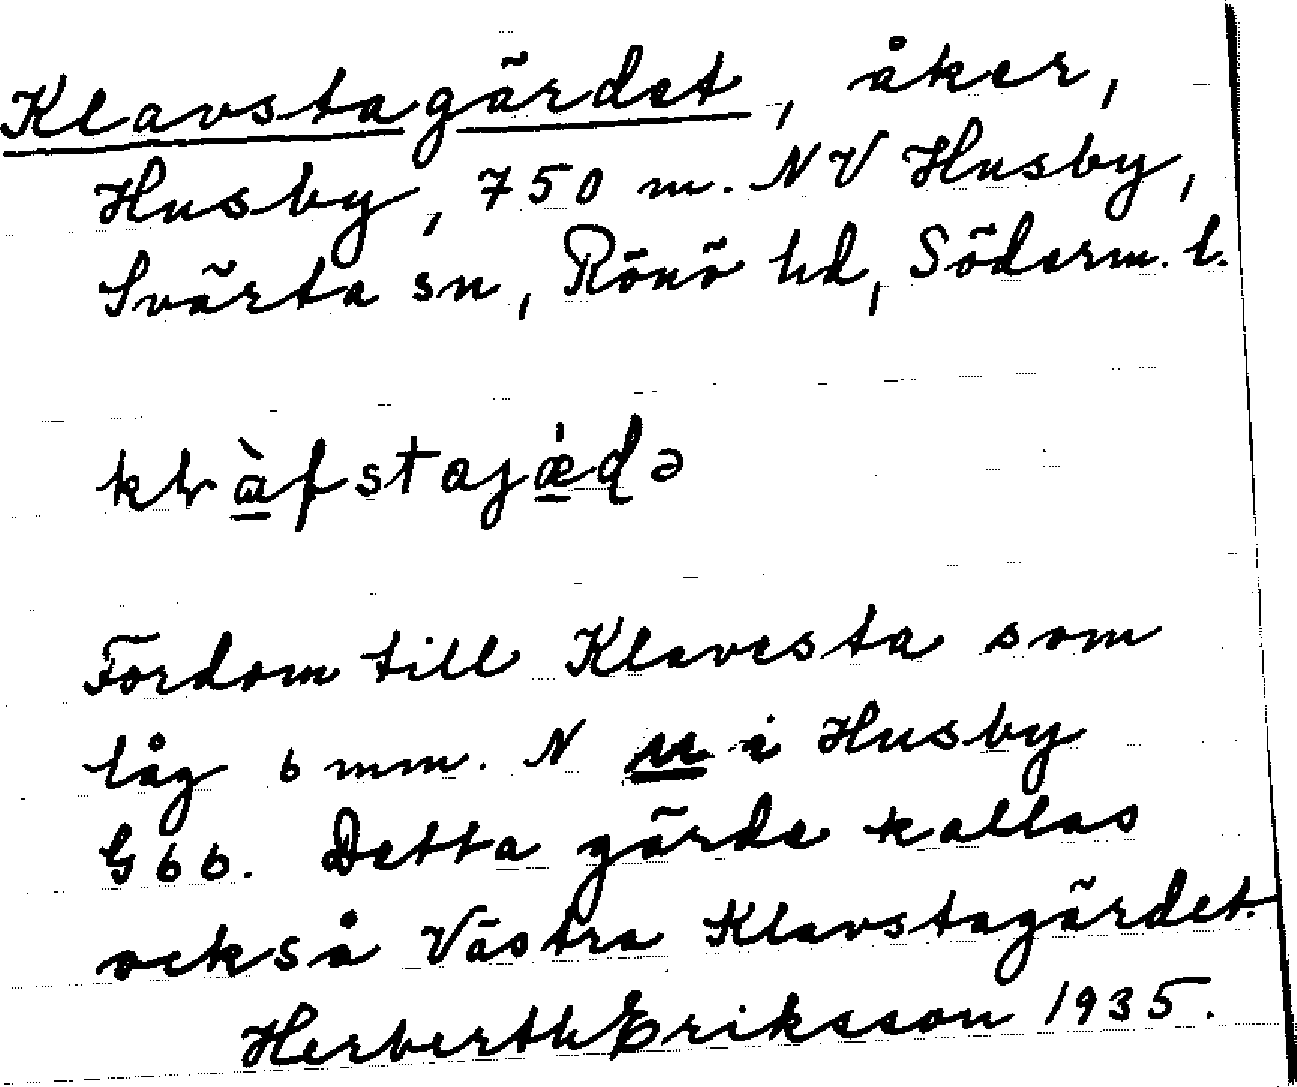 Klavstagärdet, åker,
Husby, 750 m. NV Husby,
Svärta sn, Rönö hd, Söderm. l.
Fordom till Klavesta som
låg 6 mm. N u i Husby
G66. Detta gärde kallas
också Västra Klavstagärdet.
Herberth Eriksson 1935.